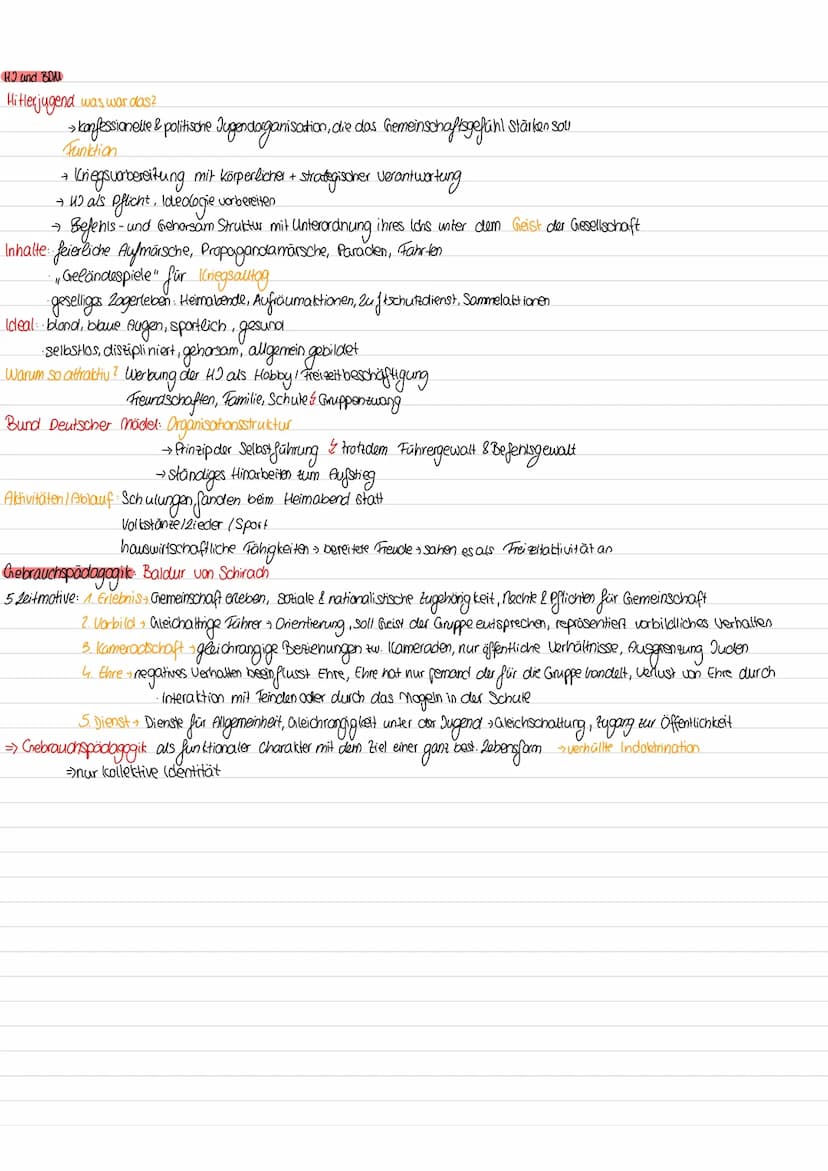 HJ und BDM
Hitlerjugend was war das?
→ konfessionelle & politische Jugendorganisation, die das Gemeinschaftsgefühl stärken soll
Funktion
→ Kriegsvorbereitung mit körperlicher + strategischer Verantwortung
→ HJ als Pflicht, Ideologie vorbereiten
→ Befehls- und Gehorsam Struktur mit Unterordnung ihres Ichs unter dem Geist der Gesellschaft
Inhalte: feierliche Aufmärsche, Propagandamärsche, Paraden, Fahrten
· „Geländespiele" für Kriegsalltag
· geselliges Lagerleben: Heimabende, Aufräumaktionen, Luftschutzdienst, Sammelaktionen
Ideal: · blond, blaue Augen, sportlich, gesund
· selbstlos, diszipliniert, gehorsam, allgemein gebildet
Warum so attraktiv? Werbung der HJ als Hobby / Freizeitbeschäftigung
Freundschaften, Familie, Schule ↯ Gruppenzwang
Bund Deutscher Mädel: Organisationsstruktur
→ Prinzip der Selbstführung ↯ trotzdem Führergewalt & Befehlsgewalt
→ ständiges Hinarbeiten zum Aufstieg
Aktivitäten / Ablauf: Schulungen fanden beim Heimabend statt
Volkstänze / Lieder / Sport
hauswirtschaftliche Fähigkeiten → bereitete Freude → sahen es als Freizeitaktivität an
Gebrauchspädagogik: Baldur von Schirach
5 Leitmotive: 1. Erlebnis → Gemeinschaft erleben, soziale & nationalistische Zugehörigkeit, Rechte & Pflichten für Gemeinschaft
2. Vorbild → Gleichaltrige Führer → Orientierung, soll Geist der Gruppe entsprechen, repräsentiert vorbildliches Verhalten
3. Kameradschaft → gleichrangige Beziehungen zw. Kameraden, nur öffentliche Verhältnisse, Ausgrenzung Juden
4. Ehre → negatives Verhalten beeinflusst Ehre, Ehre hat nur jemand der für die Gruppe handelt, Verlust von Ehre durch
· Interaktion mit Feinden oder durch das Mogeln in der Schule
5. Dienst → Dienste für Allgemeinheit, Gleichrangigkeit unter der Jugend → Gleichschaltung, Zugang zur Öffentlichkeit
⇒ Gebrauchspädagogik als funktionaler Charakter mit dem Ziel einer ganz best. Lebensform → verhüllte Indoktrination
⇒ nur kollektive Identität